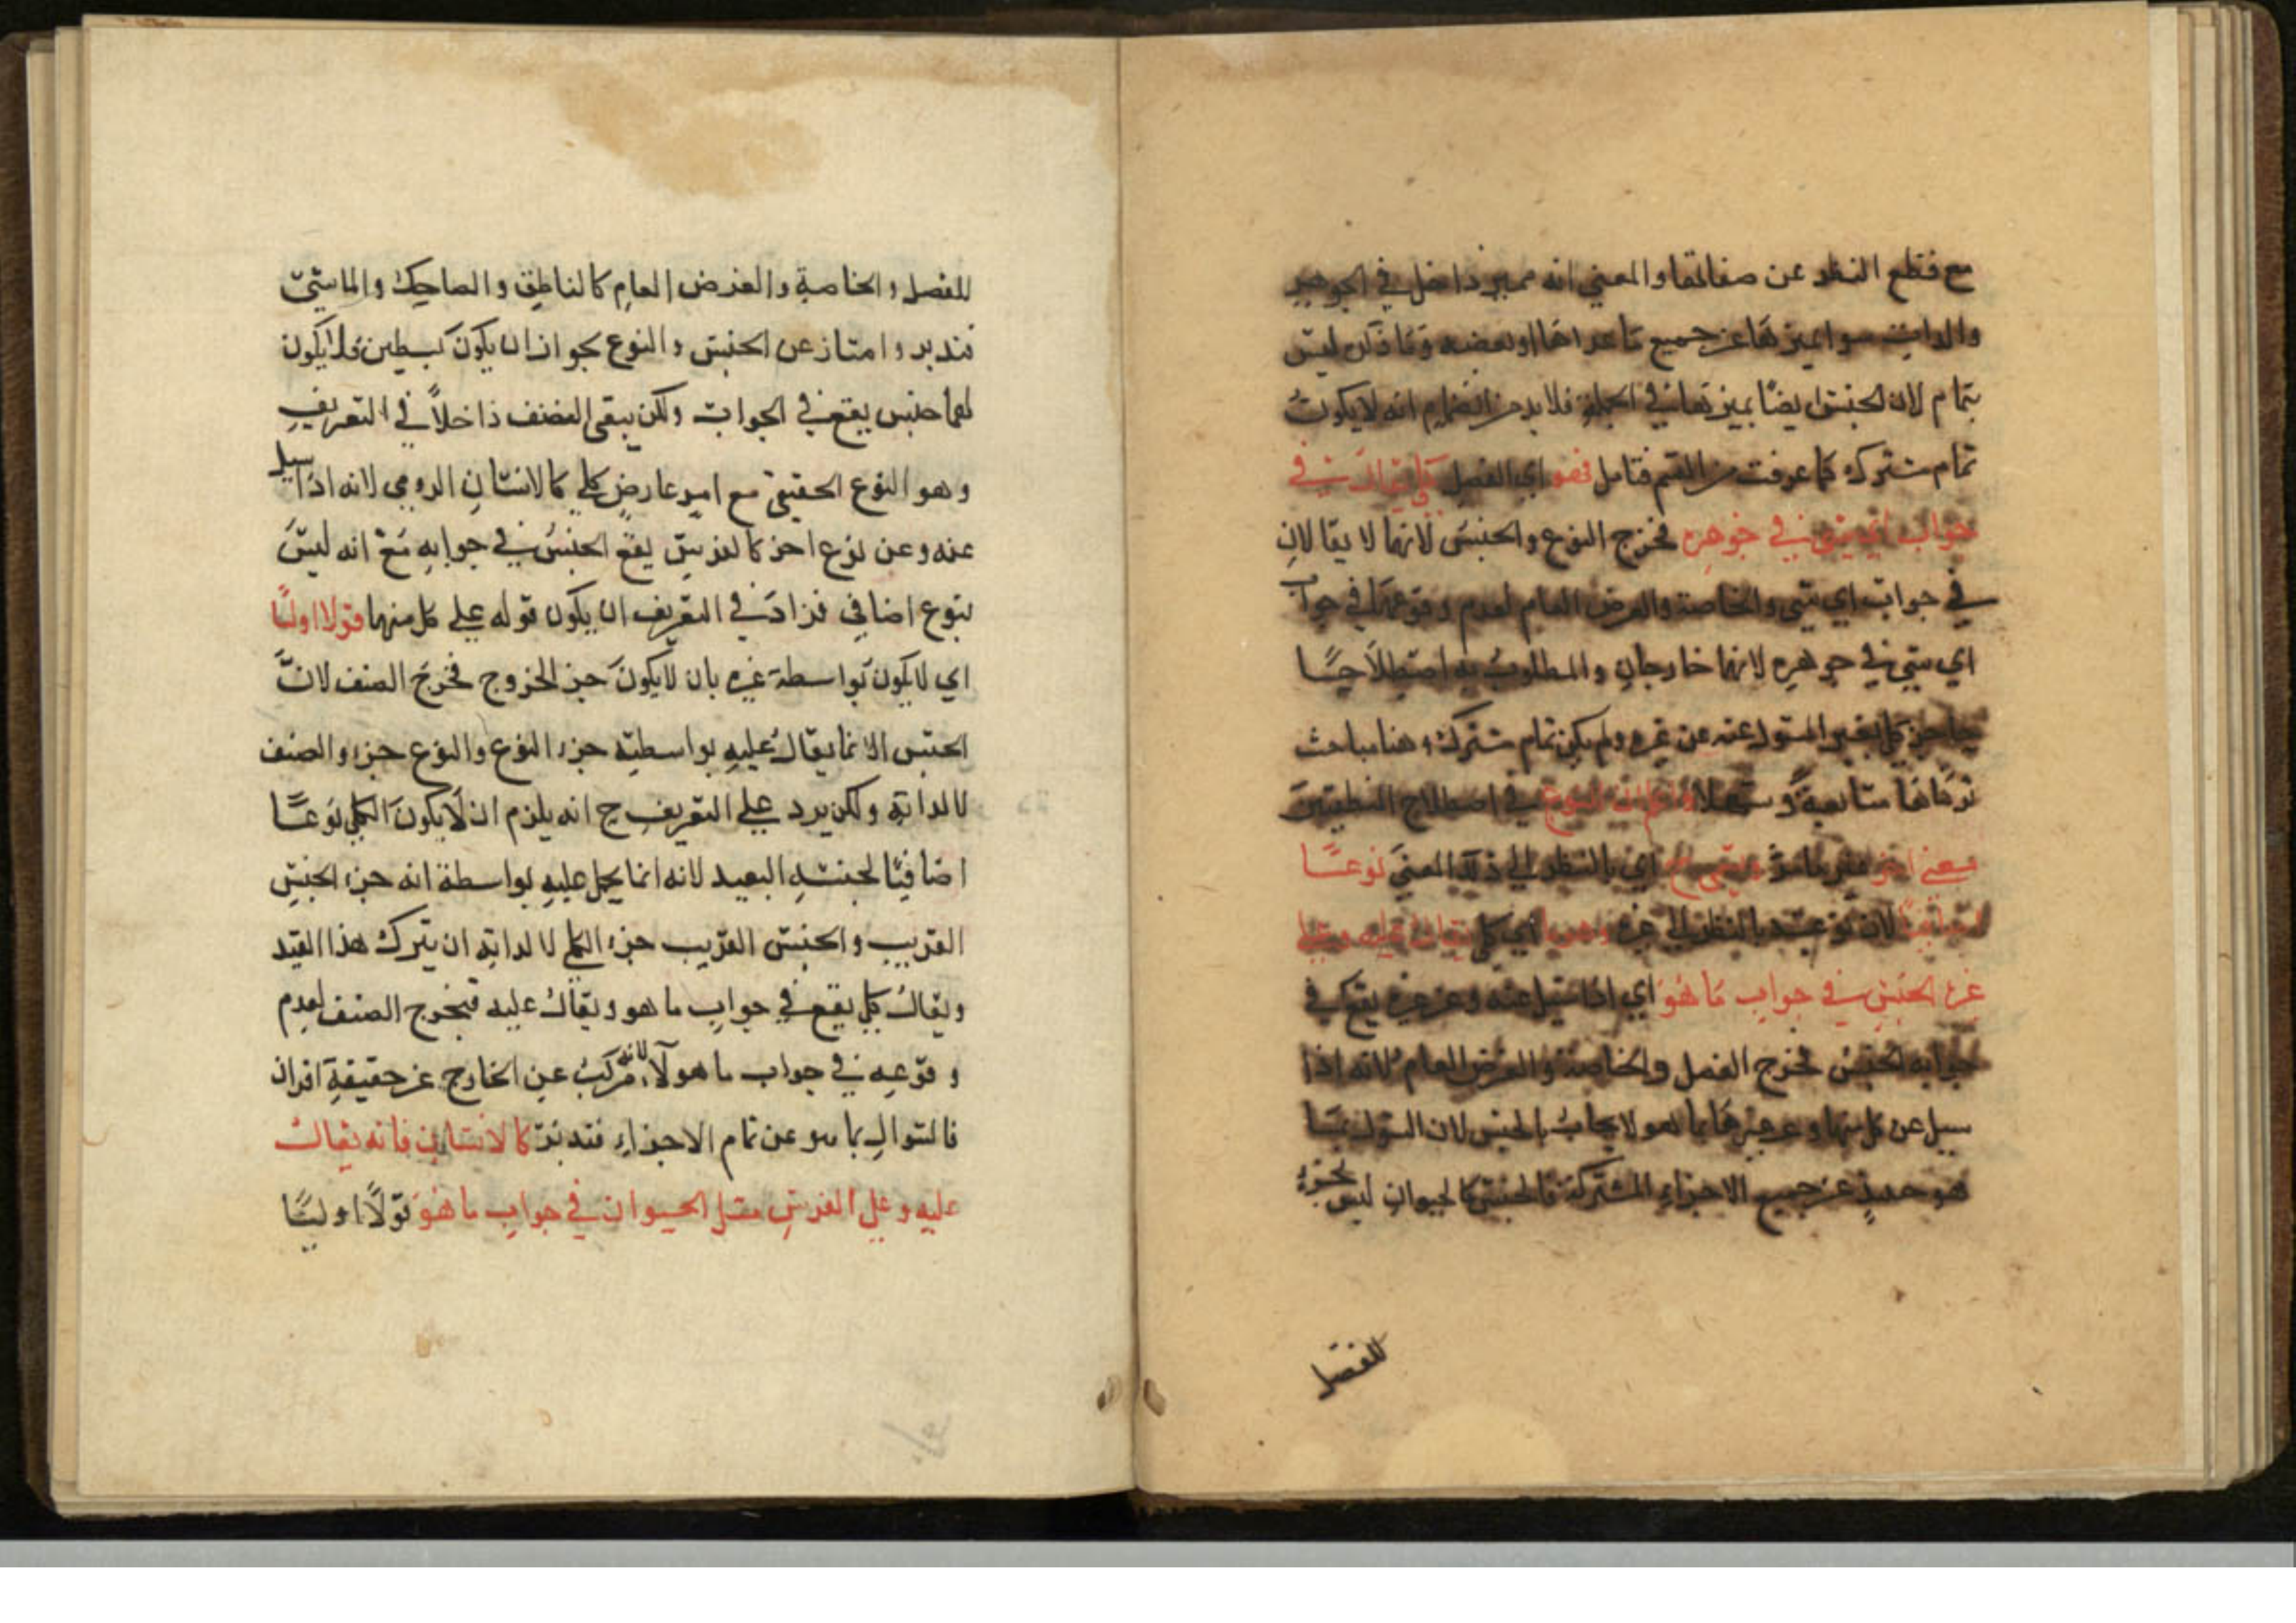 مع قطع النظر عن صفاتها والمعني انه مميز داخل في الجوهر
والذات سوا ميزها عن جميع ما عداها او بعضه وما ذكر ليس
بتمام لان الجنس ايضا يميزها في الجملة فلا بد من انضمام انه لا يكون
تمام مشترك كما عرفت من القسم فتامل فهو اي الفصل كلي يقال في
جواب اي شي في جوهره فخرج النوع والجنس لانهما لا يقالان
في جواب اي شي والخاصة والعرض العام لعدم وقوعهما في جواب
اي شي في جوهره لانهما خارجان والمطلوب به اصطلاحا
عن غيره ولم يكن تمام مشترك وهنا مباحث
في اصطلاح المنطقيين
بمعني اخر يسمي اي بالنظر الي ذلك المعني نوعا
اضافيا لان نوعيته بالنظر الي غيره وهو اي كلي يقال عليه وعلي
غيره الجنس في جواب ما هو اي اذا سيل عنه وعن غيره يقع في
جوابه الجنس فخرج الفصل والخاصة والعرض العام لانه اذا
سيل عن كل منها وعن غيرها بما هو لا يجاب بالجنس لان السوال بما
هو حينيذ عن جميع الاجزاء المشتركة فالجنس كالحيوان ليس بجزء
للفصل
للفصل والخاصة والعرض العام كالناطق والضاحك والماشي
فتدبر وامتاز عن الجنس والنوع بجواز ان يكون بسيطين فلا يكون
لهما جنس يقع في الجواب ولكن يبقى الصنف داخلا في التعريف
وهو النوع الحقيقي مع امر عارض كلي كالانسان الرومي لانه اذا سيل
عنه وعن نوع اخر كالفرس يقع الجنس في جوابه مع انه ليس
بنوع اضافي فزاد في التعريف ان يكون قوله علي كل منهما قولا اوليا
اي لا يكون بواسطة غيره بان لا يكون جزء الخروج فخرج الصنف لان
الجنس انما يقال عليه بواسطة جزء النوع والنوع جزء والصنف
لا لذاته ولكن يرد علي التعريف ح انه يلزم ان لا يكون الكلي نوعا
اضافيا لجنسه البعيد لانه انما يحمل عليه بواسطة انه جزء الجنس
القريب والجنس القريب جزء الكلي لا لذاته ان يترك هذا القيد
ويقال كلي يقع في جواب ما هو ويقال عليه فيخرج الصنف لعدم
وقوعه في جواب ما هو لانه مركب عن الخارج عن حقيقة افراد
فالسوال بما هو عن تمام الاجزاء فتدبر كالانسان فانه يقال
عليه وعلي الفرس مثل الحيوان في جواب ما هو قولا اوليا